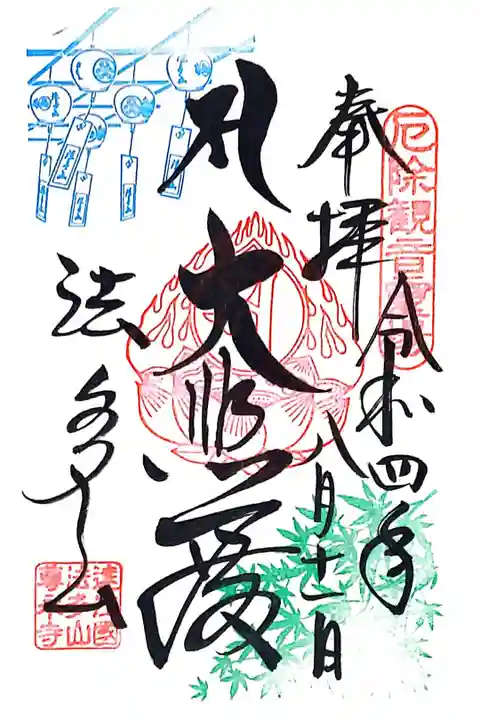 厄除観音
奉拝
令和四年
八月十一日
大悲
法多山
遠江國
法多山
尊永寺